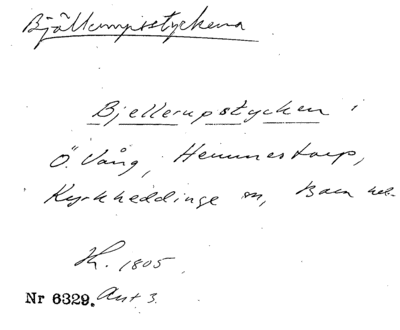 Bjällerupsstyckena
Bjellerupstycken i
Ö. Vång, Hemmestorp,
Kyrkheddinge sn, Bara hd.
Kh. 1805.
Nr 6329. Ant 3.